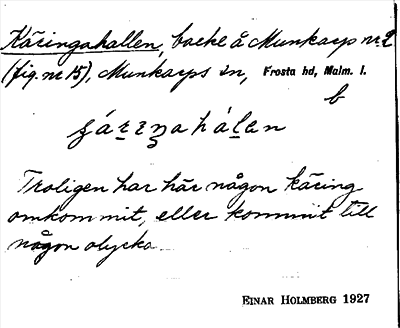 Käringahallen, backe å Munkarp nr 2
(fig. nr 15), Munkarps sn, Frosta hd, Malm. l.
b
Troligen har här någon käring
omkommit, eller kommit till
någon olycka.
EINAR HOLMBERG 1927